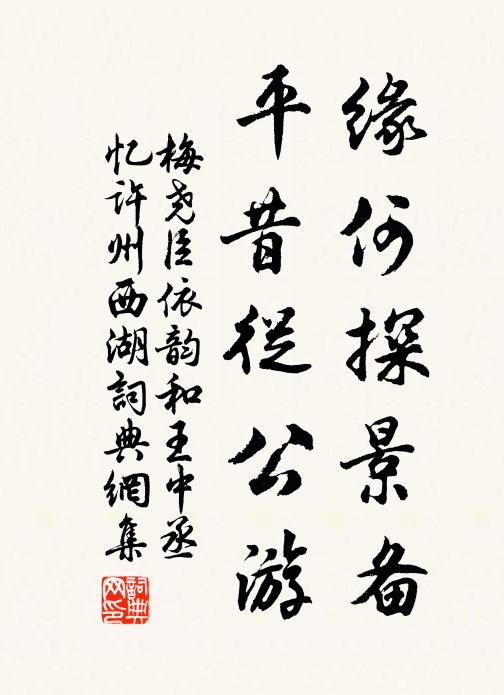 缘何探景备
平昔從公游
梅尧臣依韵和王中丞
忆许州西湖詞典網集
詞典网印